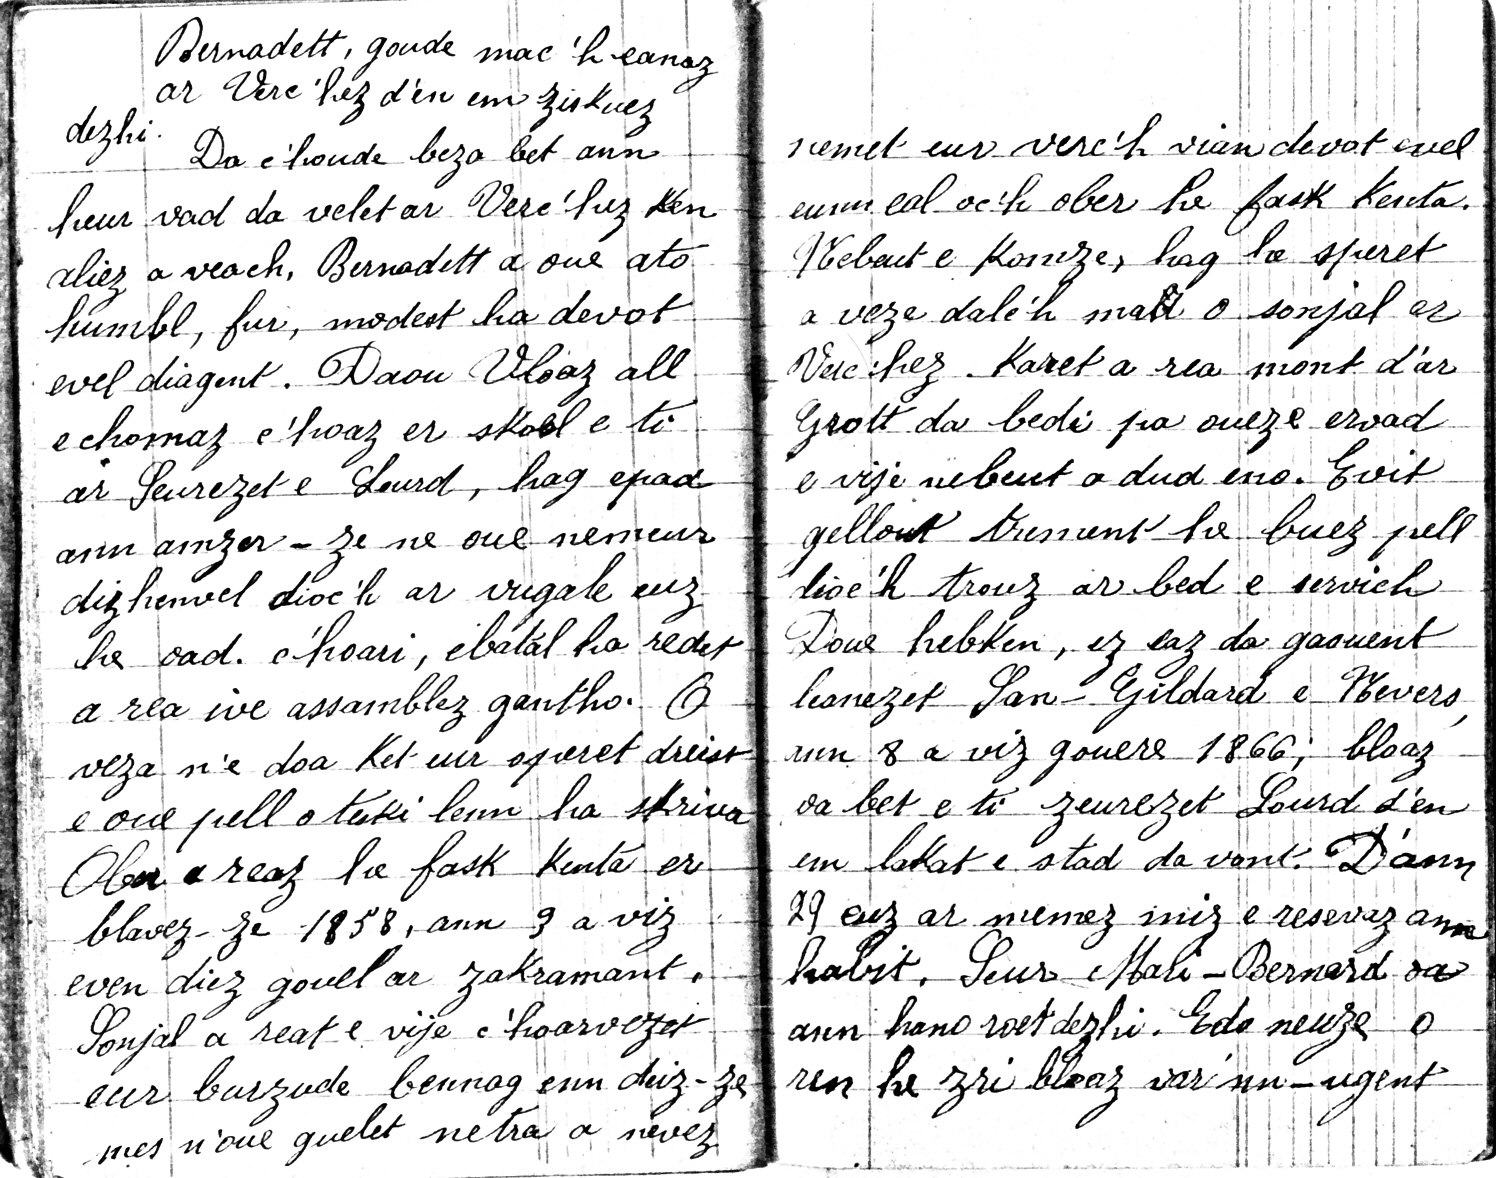 Bernadett, goude mac'h eanaz
ar Verc'hez d'en em ziskuez
dezhi.
Da c'houde beza bet ann
heur vad da velet ar Verc'hez ken
aliez a veach, Bernadett a oue ato
humbl, fur, modest ha devot
evel diagent. Daou Vloaz all
e chomaz c'hoaz er skoel e ti
ar Seurezet e Lourd, hag epad
ann amzer-ze ne oue nemeur
dizhenvel dioc'h ar vugale euz
he oad. c'hoari, ebatal ha redet
a rea ive assamblez gantho. O
veza n'e doa ket eur speret dreist
e oue pell o teski lenn ha skriva
Ober a reaz he fask kenta er
blavez-ze 1858, ann 3 a viz
even diez gouel ar zakramant.
Sonjal a reat e vije c'hoarvezet
eur burzude bennag enn deiz-ze
mes n'oue guelet netra a nevez
nemet eur verc'h vian devot evel
eunn eal oc'h ober he fask kenta.
Nebeut e komze, hag he speret
a veze dalc'h mad o sonjal er
Verc'hez. Karet a rea mont d'ar
Grott da bedi pa oueze ervad
e vije nebeut a dud eno. Evit
gellout trement he buez pell
dioc'h trouz ar bed e servich
Doue hebken, ez eaz da gaouent
leanezet San-Gildard e Nevers,
ann 8 a viz gouere 1866; bloaz
oa bet e ti zeurezet Lourd d'en
em lakat e stad da vont. D'ann
29 euz ar memez miz e resevaz ann
habit. Seur Mari-Bernard oa
ann hano roet dezhi. Edo neuze o
ren he zri bloaz var'nn-ugent